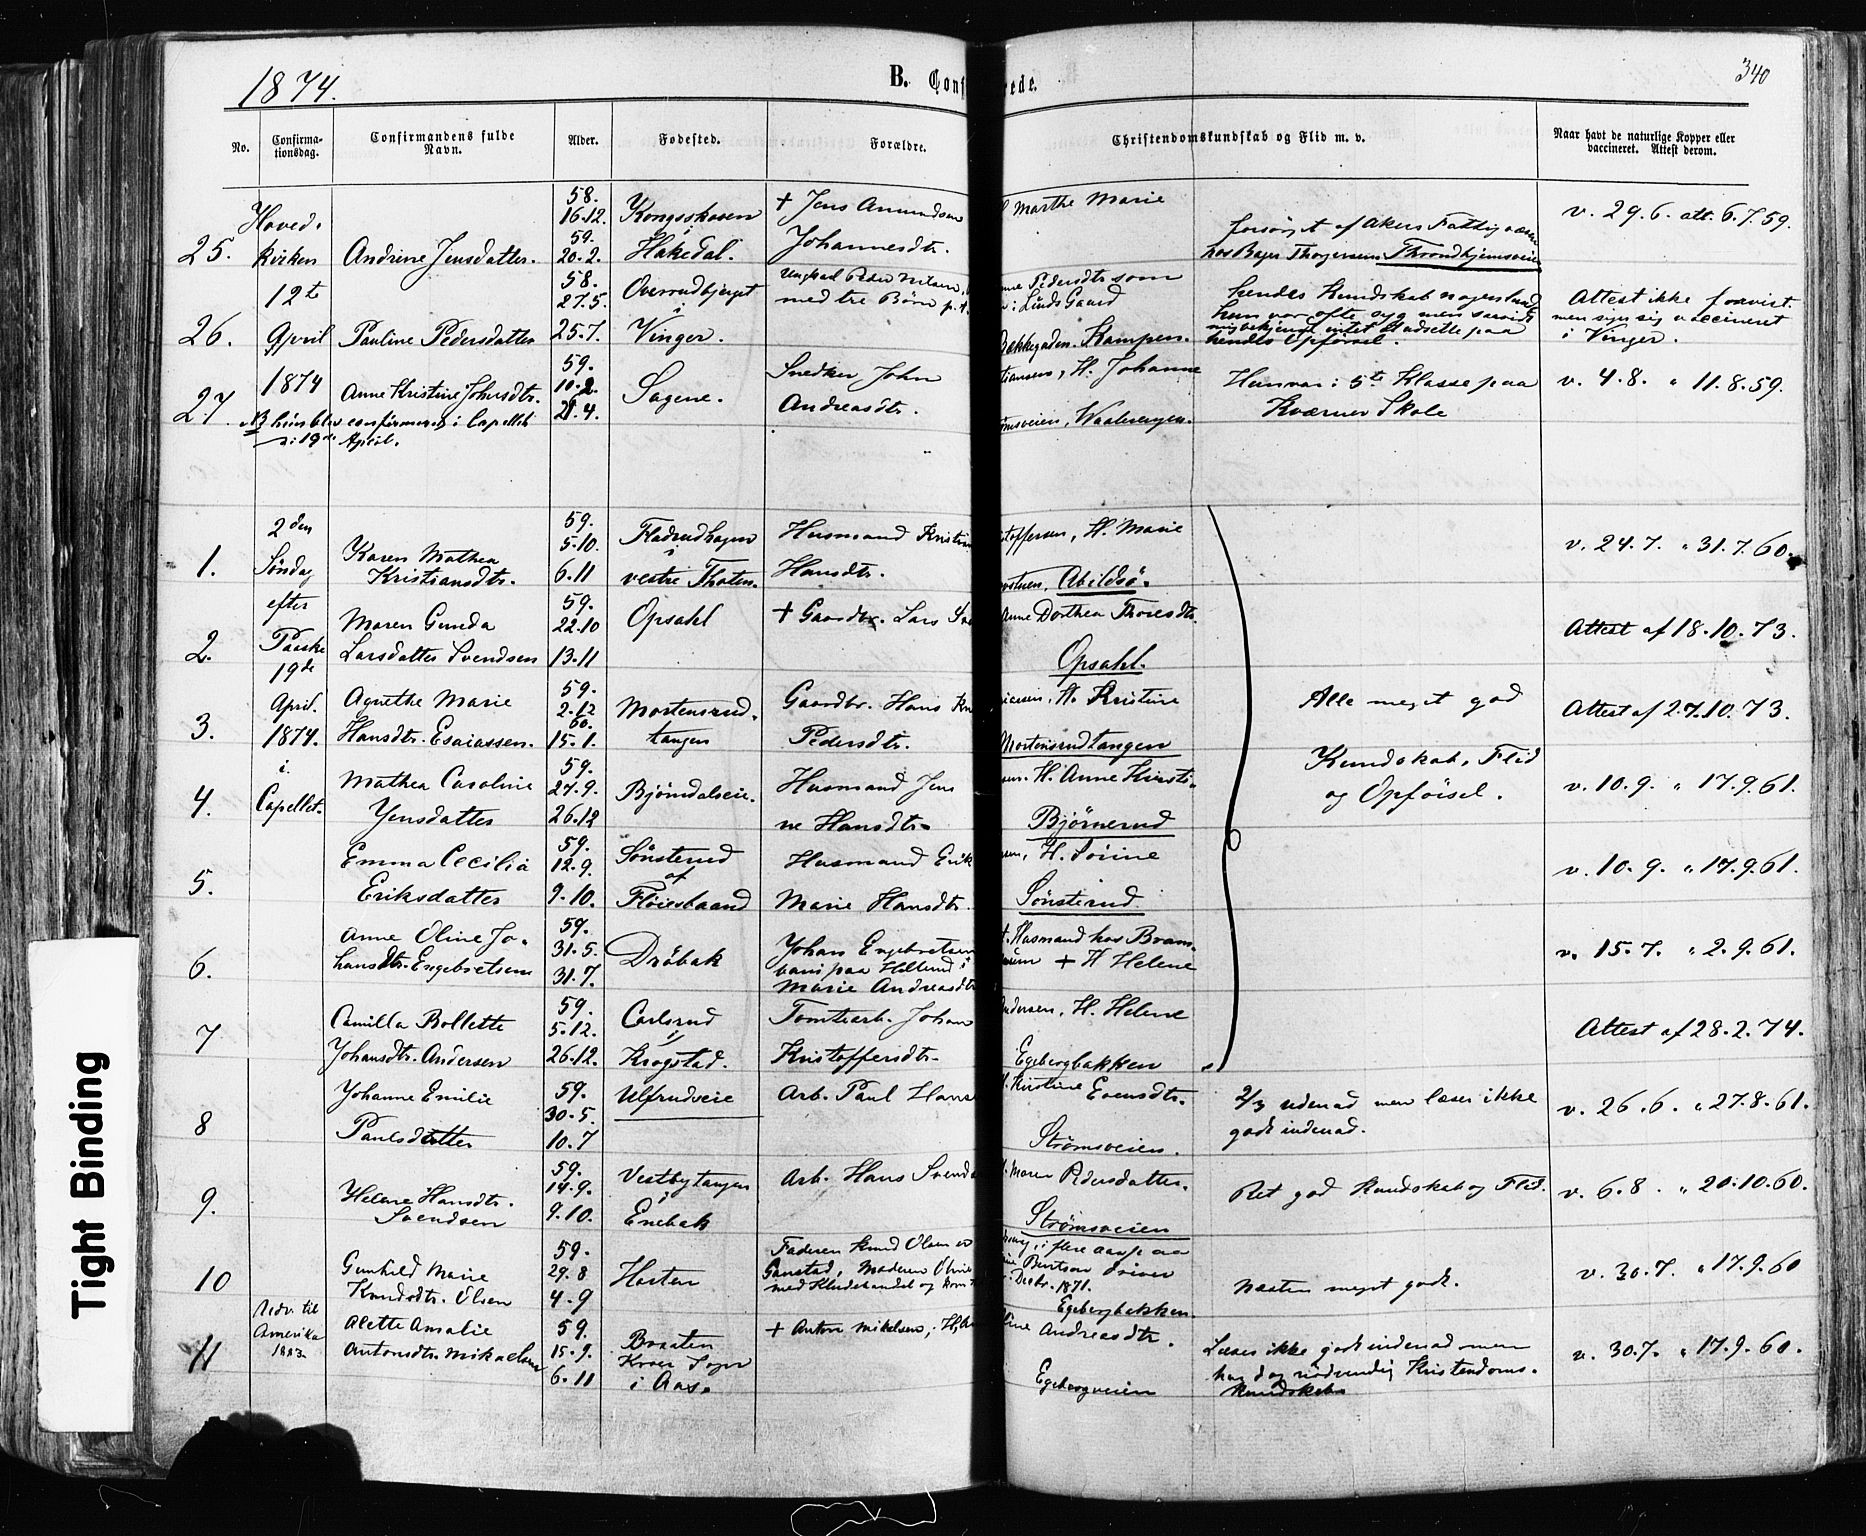 1874.
B. Conf
rede.
340
No.
Confirma-
tionsdag.
Confirmandens fulde
Navn.
Alder.
Fødested.
Forældre.
Christendomskundskab og Flid m. v.
Naar havt de naturlige Kopper eller
vaccineret. Attest derom.
Hoved-
kirken
12te
April
1874
25.
Andrine Jensdatter.
58.
16.12.
59.
20.2.
Kongsskoven
i
Hakedal.
+ Jens Amundsen
Johannesdtr.
Marthe Marie
forsørget af Akers Fattigvæsen
hos Bager Thorgersen Throndhjemsveien
v. 29.6. att. 6.7.59.
26.
Pauline Pedersdatter
58.
27.5.
25.7.
Overrudbjerget
i
Vinger.
Ungkarl Peder Nilsen,
med tre Børn p.t.
Pedersdtr som
i Lunds Gaard
Bakkegaden. Kampen.
hendes Kundskab nogenlunde
hun var ofte syg men saavidt
mig bekjendt intet at udsette paa
hendes Opførsel.
Attest ikke forevist
men siger sig vaccineret
i Vinger.
27
Anne Kristine Johnsdtr.
59.
10.2.
21.4.
Sagene.
Snedker John
Andreasdtr.
tiansen, H. Johanne
msveien, Waalerengen.
Hun var i 5te Klasse paa
Kværner Skole
v. 4.8. " 11.8.59.
NB hun blev confirmeret i Capellet
d: 19de April.
2den
Søndag
efter
Paaske
19de
April.
1874.
i
Capellet.
1.
Karen Mathea
Kristiansdtr.
59.
5.10.
6.11
Fladrudhagen
i
vestre Thoten.
Husmand Kristian
Hansdtr.
stoffersen, H. Marie
Abildsø.
v. 24.7. " 31.7.60.
2.
Maren Gunda
Larsdatter Svendsen
59.
22.10
13.11
Opsahl
+ Gaardbr. Lars Sve
Anne Dorthea Thoresdtr.
Opsahl.
Attest af 18.10.73.
3.
Agnethe Marie
Hansdtr. Esaiassen.
59.
2.12
60.
15.1.
Mortensrud-
tangen
Gaardbr. Hans
Pedersdtr.
H. Kristine
Mortensrudtangen
Alle meget god
Kundskab, Flid
og Opførsel.
Attest af 27.10.73.
4.
Mathea Caroline
Jensdatter
59.
27.9.
26.12
Bjørndalseie.
Husmand Jens
ne Hansdtr.
sen. H. Anne Kirsti-
Bjørnerud
v. 10.9. " 17.9.61.
5.
Emma Cecilia
Eriksdatter
59.
12.9.
9.10.
Sønsterud
af
Fløiesbaand
Husmand Erik
Marie Hansdtr.
sen, H. Sørine
Sønsterud
v. 10.9. " 17.9.61.
6.
Anne Oline Jo-
hansdtr. Engebretsen
59.
31.5.
31.7.
Drøbak
Johan Engebretsen
Marie Andreasdtr
Husmand hos Bram-
+ H Helene
v. 15.7. " 2.9.61.
7
Camilla Bollette
Johansdtr. Andersen
59.
5.12.
26.12.
Carlsrud
i
Krogstad.
Tomtearb. Johan
Kristoffersdtr.
Andersen, H. Helene
Egebergbakken
Attest af 28.2.74.
8
Johanne Emilie
Paulsdatter
59.
30.5.
10.7
Ulfrudveie
Arb. Paul Hans
Kristine Evensdtr.
Strømsveien.
2/3 udenad men læser ikke
godt indenad.
v. 26.6. " 27.8.61.
9.
Helene Hansdtr.
Svendsen
59.
14.9.
9.10.
Vestbytangen
i
Enebak
Arb. Hans Svends
Maren Pedersdatter.
Strømsveien
Ret god Kundskab og Flid.
v. 6.8. " 20.10.60.
10
Gunhild Marie
Knudsdtr. Olsen
59.
29.8
4.9
Horten
Faderen Knud Olsen er
Ganstad, Moderen Oline
med Kludehandel og kom
, i flere Aar paa
Berntsen driver
Decbr. 1871.
Egebergbakken
næsten meget godt.
v. 30.7. " 17.9.60
Udv. til
Amerika
1883
11
Alette Amalie
Antonsdtr. Mikaelsen
59.
15.9.
6.11
Braaten
Kroer Sogn
i Aas.
+ Anton Mikelsen, H.
Andreasdtr.
Egebergveien
Læser ikke godt indenad men
har dog nødvendig Kristendoms-
kundskab
v. 30.7. " 17.9.60.
Tight Binding